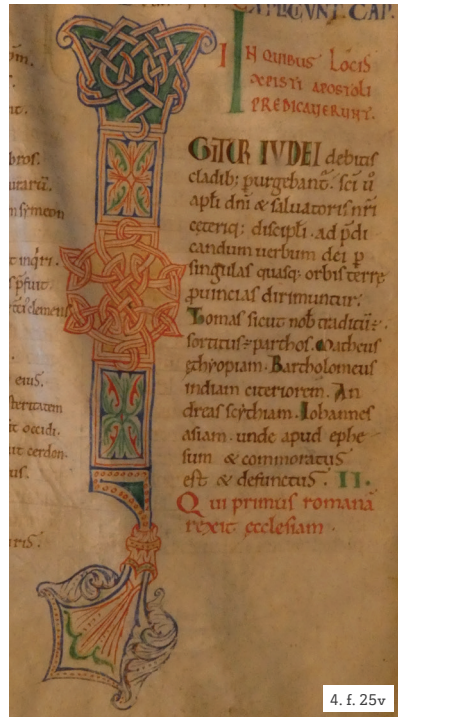 EXPLICIUNT CAP.
I IN QUIBUS LOCIS
XPISTI APOSTOLI
PREDICAUERUNT.
GITUR IUDEI debitis
cladib; purgebant̄. sc̄i ū
apl̄i dn̄i & saluatoris nr̄i
ceteriq; discipl̄i. ad p̄di
candum uerbum dei ꝑ
singulas quasq; orbis terre
ꝓuincias dirimuntur.
Tomas sicut nob̄ traditū ÷.
sortitus ÷ parthos. Matheus
ethyopiam. Bartholomeus
indiam citeriorem. An
dreas scythiam. Iohannes
asiam. unde apud ephe
sum & commoratuS
est & defunctuS. II.
Qui primus romanā
rexit ecclesiam.
4. f. 25v